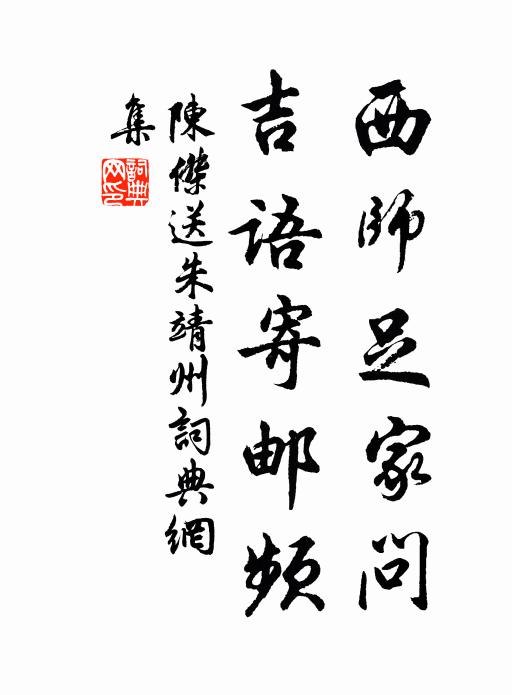 西師足家問
吉語寄邮頻
陳傑送朱靖州詞典網
集
詞典網印